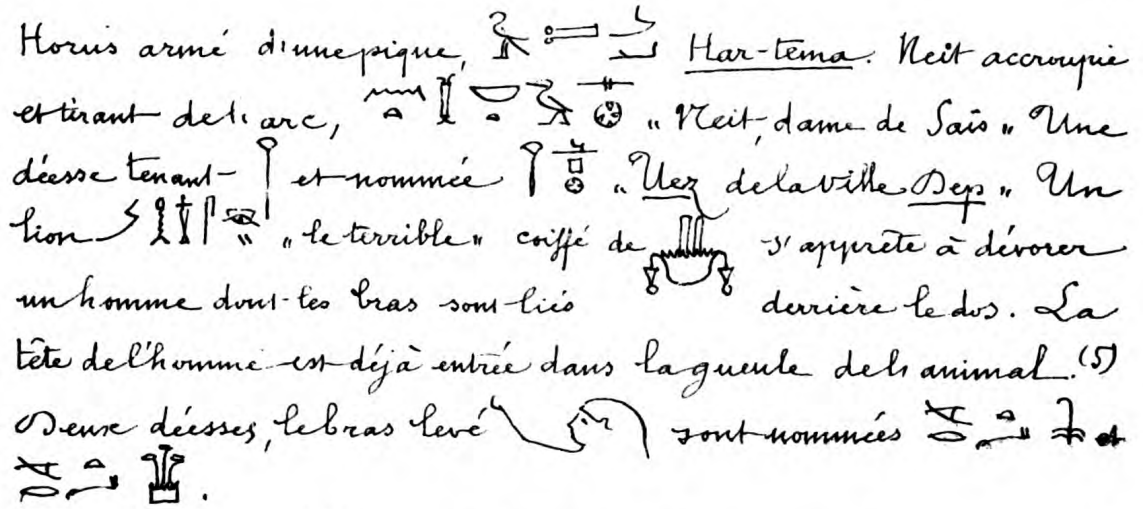 Horus armé d'une pique, Har-tema. Neit accroupie
et tirant de l'arc, „ Neit, dame de Saïs „ Une
déesse tenant et nommée „ Uez de la ville Dep „ Un
lion „ le terrible „ coiffé de s'apprête à dévorer
un homme dont les bras sont liés derrière le dos. La
tête de l'homme est déjà entrée dans la gueule de l'animal. (5)
Deux déesses, le bras levé sont nommées et